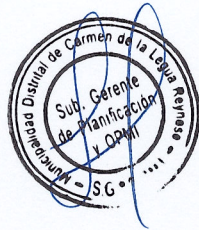 Municipalidad Distrital de Carmen de la Legua Reynoso
Sub. Gerente
de Planificación
y OPMI
S.G.